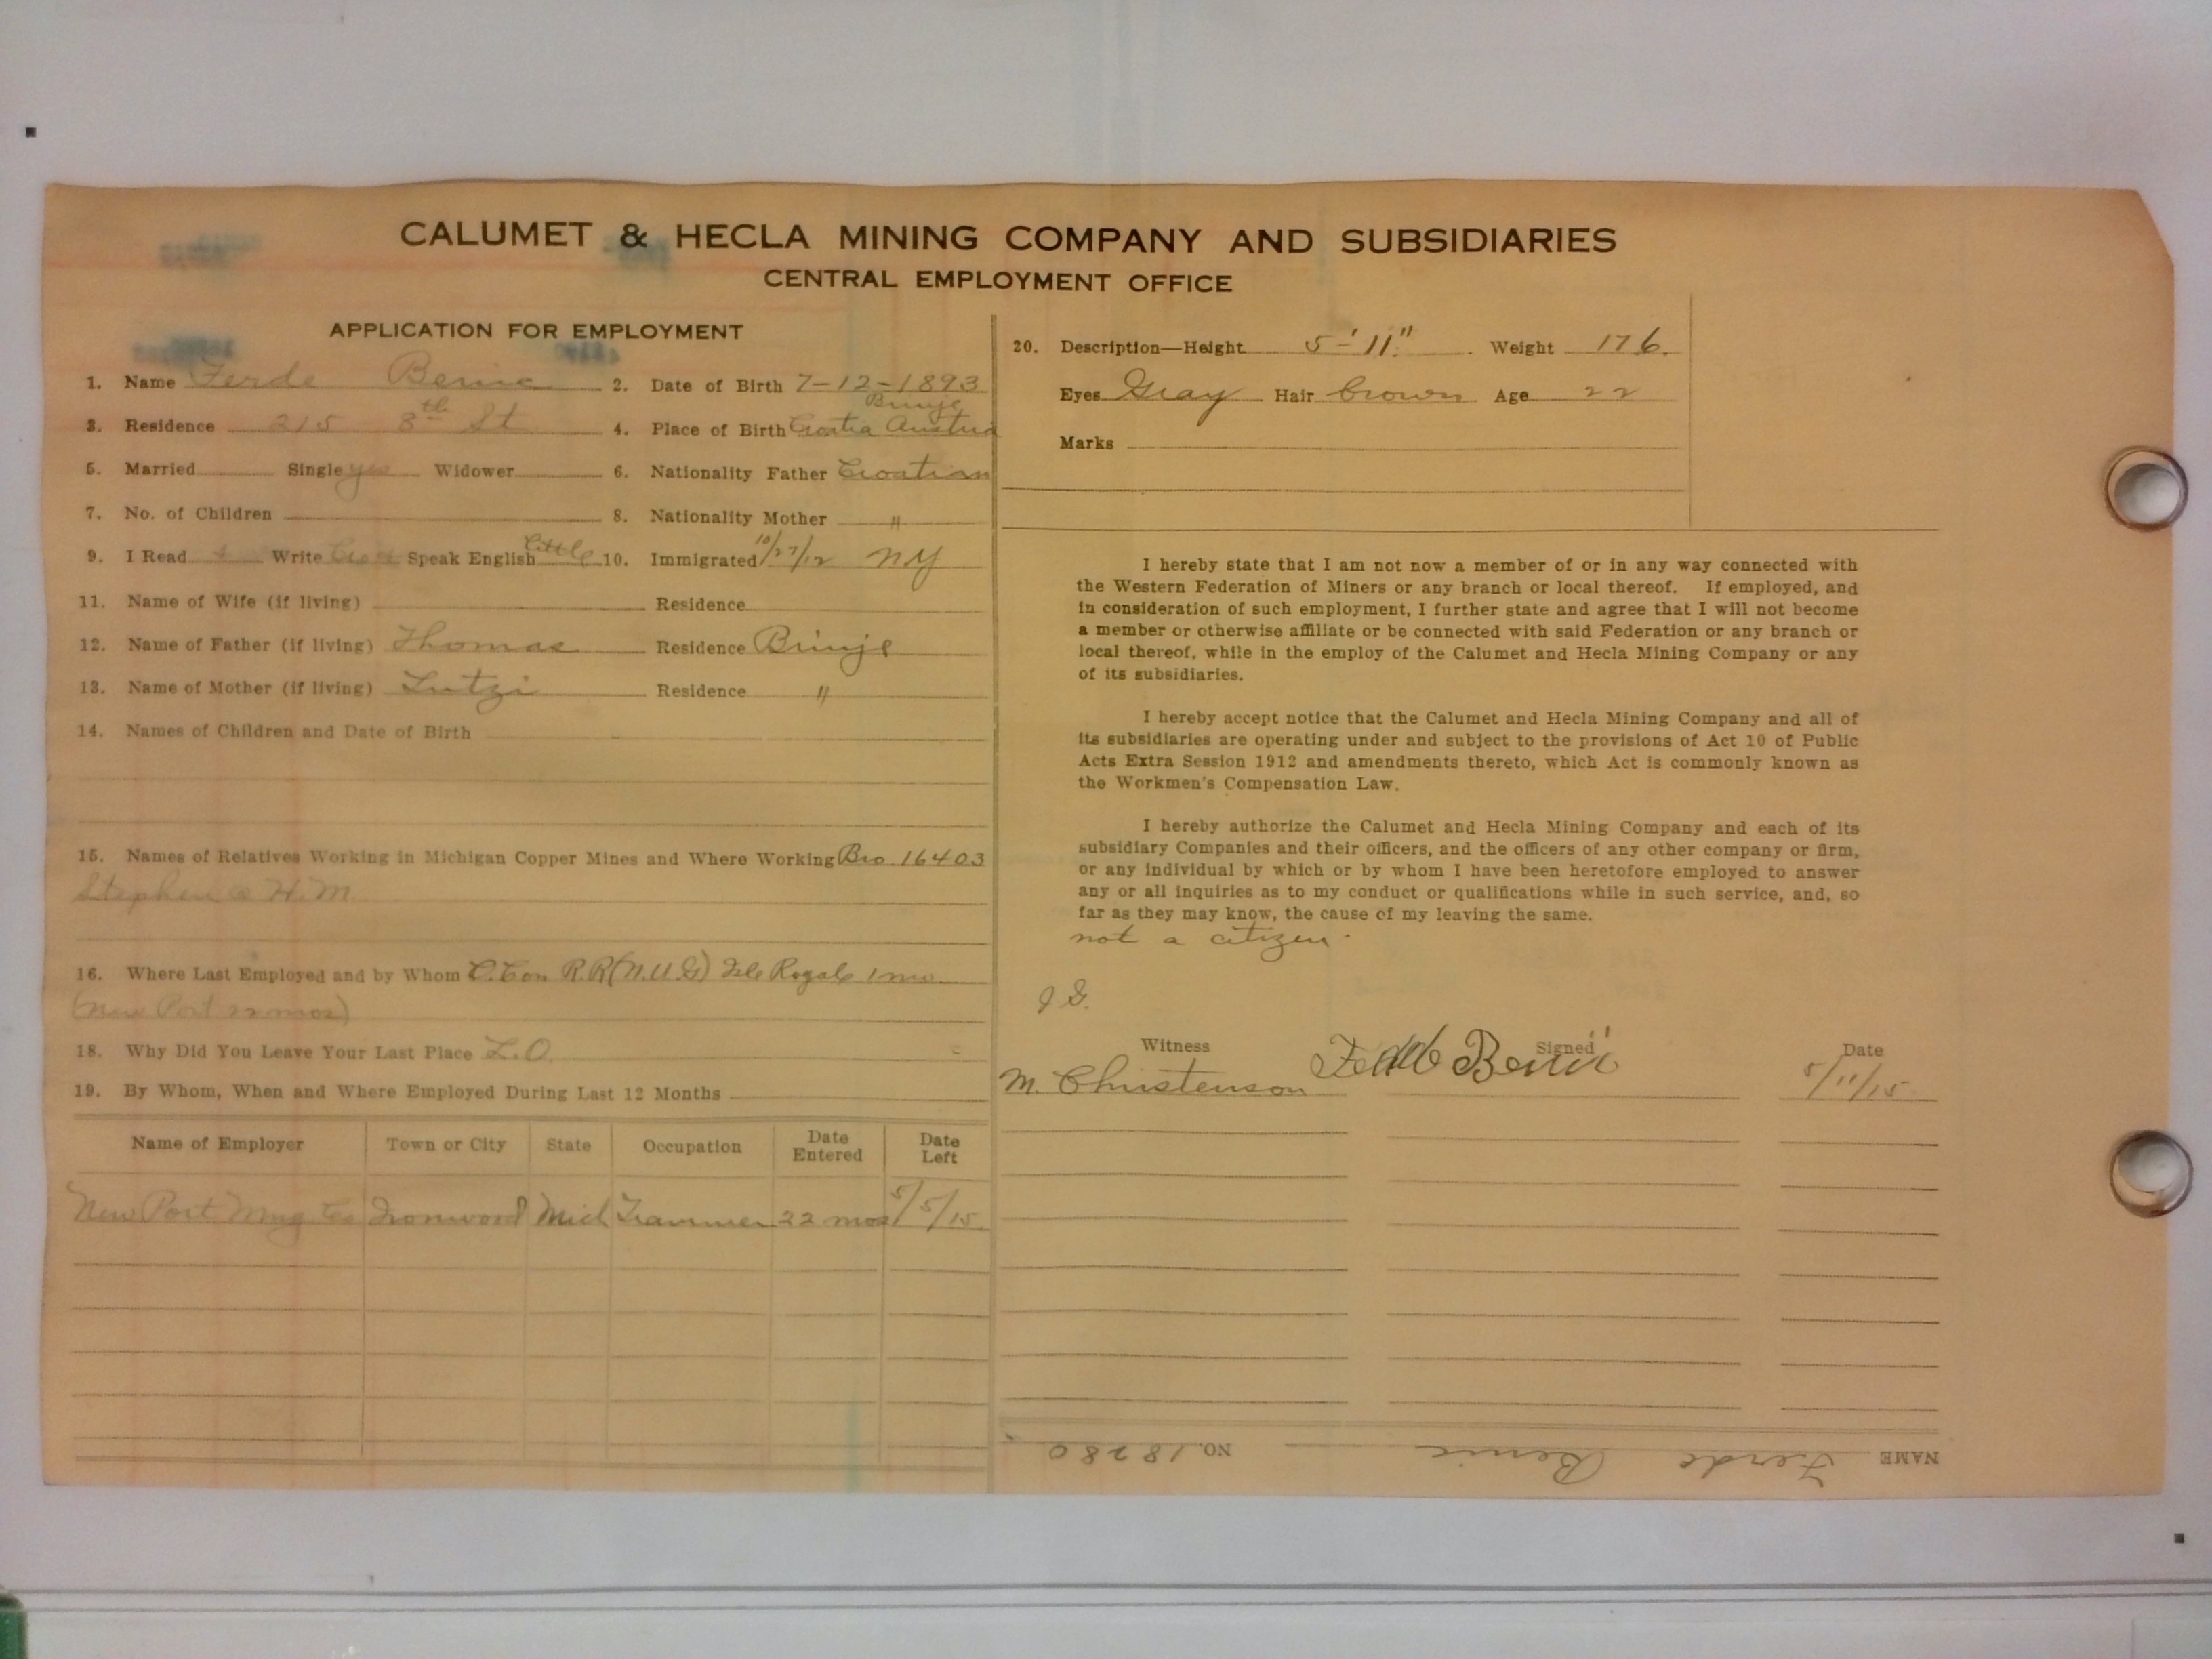 CALUMET & HECLA MINING COMPANY AND SUBSIDIARIES
CENTRAL EMPLOYMENT OFFICE
APPLICATION FOR EMPLOYMENT
1. Name Ferde Benic 2. Date of Birth 7-12-1893
Brinje
3. Residence 215 8th St 4. Place of Birth Croatia Austria
5. Married Single yes Widower 6. Nationality Father Croatian
7. No. of Children 8. Nationality Mother "
9. I Read & Write Speak English little 10. Immigrated 10/27/12 NY
11. Name of Wife (if living) Residence
12. Name of Father (if living) Thomas Residence Brinje
13. Name of Mother (if living) Lutzi Residence "
14. Names of Children and Date of Birth
15. Names of Relatives Working in Michigan Copper Mines and Where Working Bro. 16403
Stephen @ H.M.
16. Where Last Employed and by Whom C. Con R.R (N.U.G) Isle Royale 1 mo.
(New Port 22 mos)
18. Why Did You Leave Your Last Place L.O.
19. By Whom, When and Where Employed During Last 12 Months
Name of Employer Town or City State Occupation Date Entered Date Left
New Port Mng Co Ironwood Mich Trammer 22 mos 5/5/15
20. Description—Height 5'-11" Weight 176.
Eyes Gray Hair brown Age 22
Marks
I hereby state that I am not now a member of or in any way connected with
the Western Federation of Miners or any branch or local thereof. If employed, and
in consideration of such employment, I further state and agree that I will not become
a member or otherwise affiliate or be connected with said Federation or any branch or
local thereof, while in the employ of the Calumet and Hecla Mining Company or any
of its subsidiaries.
I hereby accept notice that the Calumet and Hecla Mining Company and all of
its subsidiaries are operating under and subject to the provisions of Act 10 of Public
Acts Extra Session 1912 and amendments thereto, which Act is commonly known as
the Workmen's Compensation Law.
I hereby authorize the Calumet and Hecla Mining Company and each of its
subsidiary Companies and their officers, and the officers of any other company or firm,
or any individual by which or by whom I have been heretofore employed to answer
any or all inquiries as to my conduct or qualifications while in such service, and, so
far as they may know, the cause of my leaving the same.
not a citizen.
J G.
Witness Signed Date
M. Christenson Benić 5/11/15
NAME Ferde Benic NO. 18280